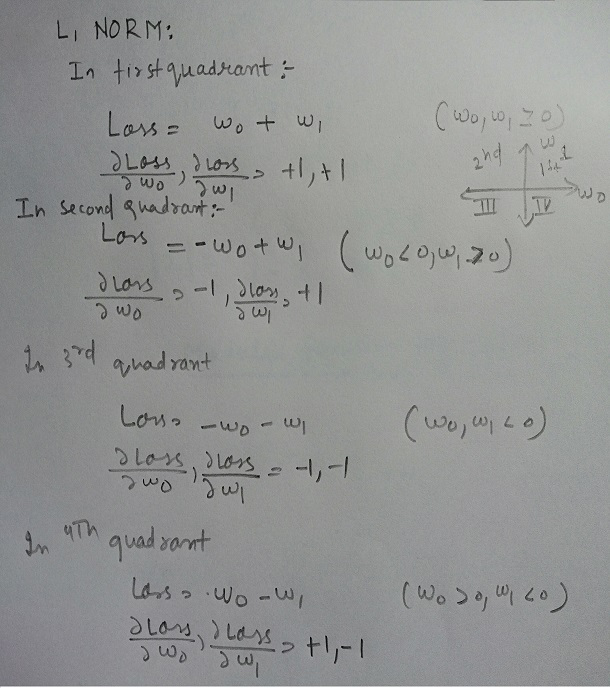 L1 NORM:
In first quadrant :-
Loss = w0 + w1 (w0, w1 ≥ 0)
∂Loss/∂w0, ∂Loss/∂w1 = +1, +1
2nd w1 1st
III IV w0
In second quadrant :-
Loss = -w0 + w1 (w0 < 0, w1 ≥ 0)
∂Loss/∂w0 = -1, ∂Loss/∂w1 = +1
In 3rd quadrant
Loss = -w0 - w1 (w0, w1 < 0)
∂Loss/∂w0, ∂Loss/∂w1 = -1, -1
In 4Th quadrant
Loss = w0 - w1 (w0 > 0, w1 < 0)
∂Loss/∂w0, ∂Loss/∂w1 = +1, -1